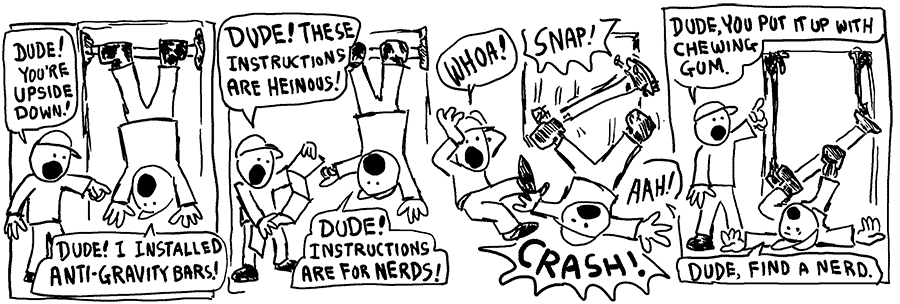 DUDE!
YOU'RE
UPSIDE
DOWN!
DUDE! I INSTALLED
ANTI-GRAVITY BARS!
DUDE! THESE
INSTRUCTIONS
ARE HEINOUS!
DUDE!
INSTRUCTIONS
ARE FOR NERDS!
WHOA!
SNAP!
AAH!
CRASH!
DUDE, YOU PUT IT UP WITH
CHEWING
GUM.
DUDE, FIND A NERD.